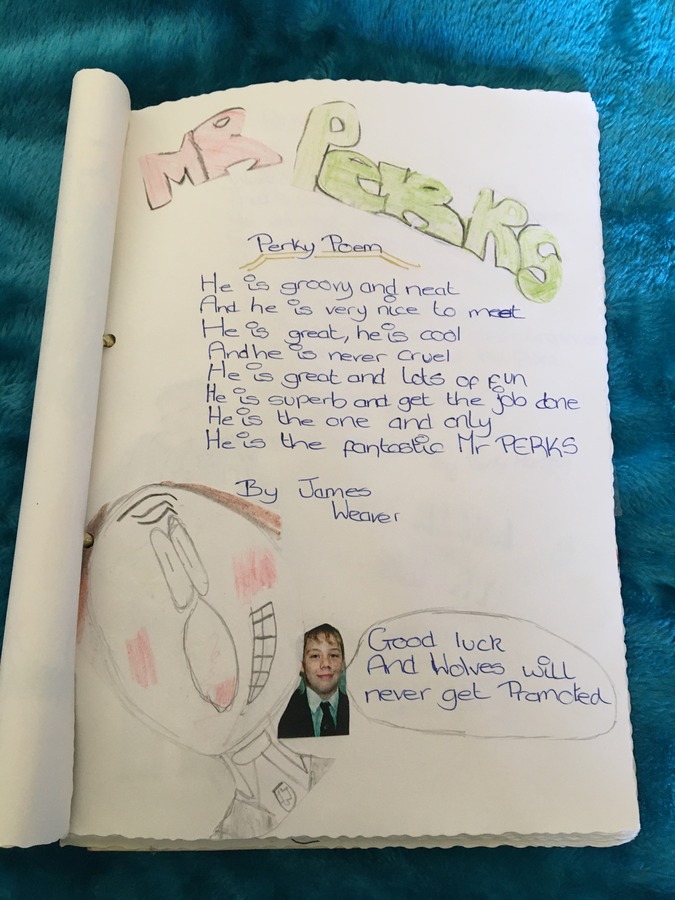 MR PERKS
Perky Poem
He is groovy and neat
And he is very nice to meet
He is great, he is cool
And he is never cruel
He is great and lots of fun
He is superb and get the job done
He is the one and only
He is the fantastic Mr PERKS
By James
Weaver
Good luck
And Wolves will
never get Promoted